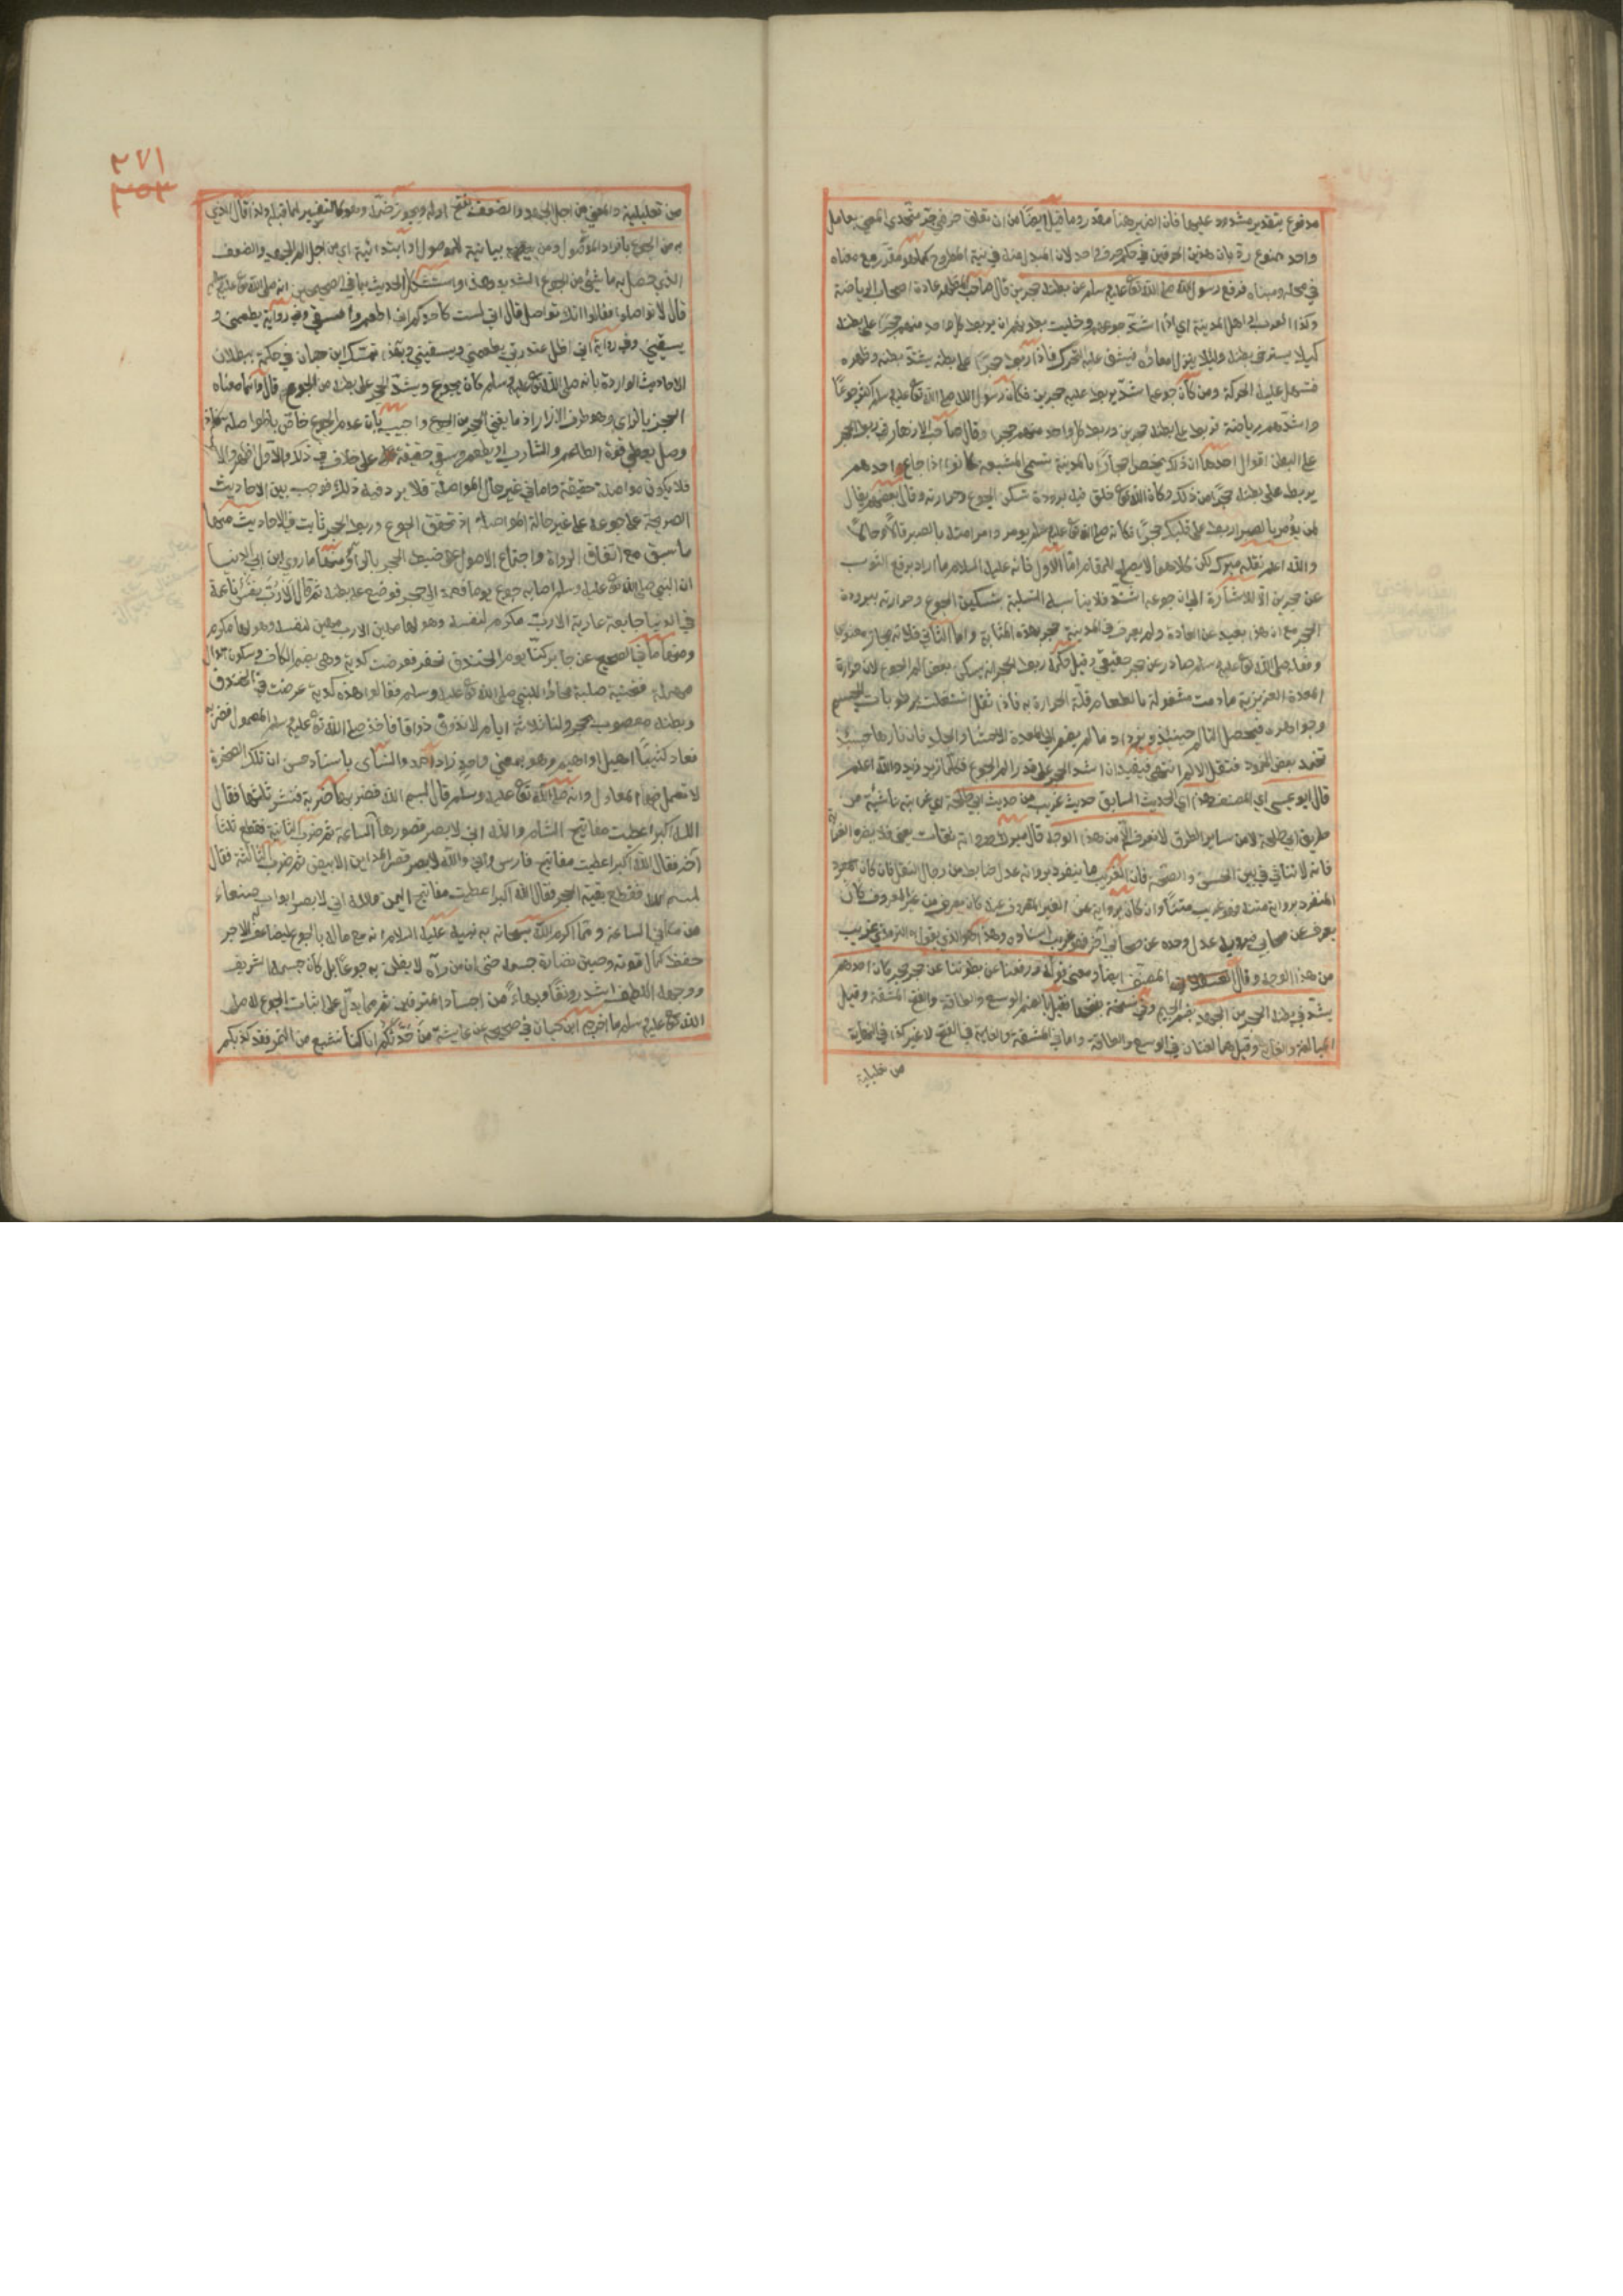 مدفوع بتقدير مشدود عليها فان الضمير هنا مقدر وما قيل ايضا من ان تعلق حرفي جر متحدي المعنى بعامل
واحد ممنوع رد بان هذين الحرفين في حكم حرف واحد لان المبدل منه في نية المطروح كما هو مقرر مع معناه
في محله ومبناه فرفع رسول الله صلى الله تع عليه وسلم عن بطنه حجرين قال صاحب المظهر عادة اصحاب الرياضة
وكذا العرب او اهل المدينة اي اذا اشتد جوعهم وخليت بطونهم ان يربط كل واحد منهم حجرا على بطنه
كيلا يسترخي بطنه ولئلا ينزل امعاؤه فيشق عليه التحرك فاذا ربط حجرا على بطنه يشتد بطنه وظهره
فتسهل عليه الحركة ومن كان جوعه اشد يربط عليه حجرين فكان رسول الله صلى الله تع عليه وسلم اكثرهم جوعا
واشدهم رياضة فربط على بطنه حجرين وربط كل واحد منهم حجرا وقال صاحب الازهار في ربط الحجر
على البطن اقوال احدها ان ذلك يختص احجارا بالمدينة تسمى المشبعة كانوا اذا جاع احدهم
يربط على بطنه حجرا من ذلك وكان الله تع خلق فيه برودة تسكن الجوع وحرارته وقال بعضهم يقال
لمن يؤمر بالصبر اربط على قلبك حجرا فكانه صلى الله تع عليه وسلم يؤمر وامر امته بالصبر قالا وحالا
والله اعلم نقله ميرك لكن كلاهما لا يصلح للمقام اما الاول فانه عليه السلام ما اراد برفع الثوب
عن حجرين الا للاشارة الى ان جوعه اشد فلا يناسبه التسلية بتسكين الجوع وحرارته ببرودة
الحجر مع ان هذا بعيد عن العادة ولم يعرف في المدينة حجر بهذه المثابة واما الثاني فلانه مجاز معنوي
وفعله صلى الله تع عليه وسلم صادر عن حجر حقيقي وقيل حكمة ربط الحجر انه يسكن بعض الم الجوع لان حرارة
المعدة الغريزية ما دامت مشغولة بالطعام قلة الحرارة به فاذا نفد اشتغلت برطوبات الجسم
وجواهره فيحصل التالم حينئذ ويزداد ما لم يضم الى المعدة الاحشاء والجلد فان نارها حينئذ
تخمد بعض الخمود فتقل الالم انتهى فيفيد ان اشد الحجر على قدر الم الجوع فكلما زيد زيد والله اعلم
قال ابو عيسى اي المصنف هذا اي الحديث السابق حديث غريب من حديث ابي طلحة اي غرابته ناشئة من
طريق ابي طلحة لا من ساير الطرق لا نعرفه الا من هذا الوجه قال ميرك ورواته ثقات يعني فلا يضره الغرابة
فانه لا تنافي بين الحسن والصحة فان الغريب ما ينفرد بروايته عدل ضابط من رجال النقل فان كان المجرد
المنفرد برواية متنه فهو غريب متنا وان كان بروايته عن الغير المعروف عنه كان يعرف من غير المعروف كأن
يعرف عن صحابي فيرويه عدل وحده عن صحابي آخر فهو غريب اسنادا وهذا هو الذي يقول فيه الترمذي غريب
من هذا الوجه وقال المصنف ايضا ومعنى قوله ورفعنا عن بطوننا عن حجر حجر كان احدهم
يشد في بطنه الحجر من الجهد بضم الجيم وفي نسخة بفتحها فقيل بالضم الوسع والطاقة وبالفتح المشقة وقيل
المبالغة والغاية وقيل هما لغتان في الوسع والطاقة واما في المشقة والغاية في الفتح لا غير كذا في النهاية
من تعليلية
٢٧١
٢٥٣
من تعليلية والمعنى من اجل الجهد والضعف بفتح اوله ويجوز ضمه وهو كالتفسير لما قبله ولذا قال الذي
به من الجوع بافراد الموصول ومن بيانية للموصول او ابتدائية اي من اجل الم الجهد والضعف
الذي حصل به ناشئ من الجوع الشديد وهذا واستشكل الحديث بما في الصحيحين انه صلى الله تع عليه وسلم
قال لا تواصلوا فقالوا انك تواصل قال اني لست كاحدكم اني اطعم واسقى وفي رواية يطعمني و
يسقيني وفي رواية اني اظل عند ربي يطعمني ويسقيني وبهذا تمسك ابن حبان في حكمه ببطلان
الاحاديث الواردة بانه صلى الله تع عليه وسلم كان يجوع ويشد الحجر على بطنه من الجوع قال وانما معناه
الحجز بالزاي وهو طرف الازار اذ ما يغني الحجر من الجوع واجيب بان عدم الجوع خاص بالمواصلة فكان اذا
وصل يعطى قوة الطاعم والشارب او يطعم ويسقى حقيقة على خلاف في ذلك والاول اظهر والا
فلا يكون مواصلة حقيقة واما في غير حال المواصلة فلا يرد فيه ذلك فوجب الجمع بين الاحاديث
الصريحة على جوعه على غير حالة المواصلة اذ تحقق الجوع وربط الحجر ثابت في الاحاديث منها
ما سبق مع اتفاق الرواة واجتماع الاصول على ضبط الحجر بالراء ومنها ما روى ابن ابي الدنيا
ان النبي صلى الله تع عليه وسلم اصابه جوع يوما فعمد الى حجر فوضعه على بطنه ثم قال الا رب نفس ناعمة
في الدنيا جايعة عارية الا رب مكرم لنفسه وهو لها مهين الا رب مهين لنفسه وهو لها مكرم
ومنها ما في الصحيح عن جابر كنا يوم الخندق نحفر فعرضت كدية وهي بضم الكاف وسكون دال
مهملة فتحتية صلبة فجاؤا للنبي صلى الله تع عليه وسلم فقالوا هذه كدية عرضت في الخندق
وبطنه معصوب بحجر ولبثنا ثلاثة ايام لا نذوق ذواقا فاخذ صلى الله تع عليه وسلم المعول فضرب
فعاد كثيبا اهيل او اهيم وهو بمعنى واحد زاد احمد والنسائي باسناد حسن ان تلك الصخرة
لا تعمل فيها المعاول وانه صلى الله تع عليه وسلم قال بسم الله فضربها ضربة فنشر ثلثها فقال
الله اكبر اعطيت مفاتيح الشام والله اني لابصر قصورها الساعة ثم ضرب الثانية فقطع ثلثا
آخر فقال الله اكبر اعطيت مفاتيح فارس واني والله لابصر قصر المداين الابيض ثم ضرب الثالثة فقال
بسم الله فقطع بقية الحجر فقال الله اكبر اعطيت مفاتيح اليمن والله اني لابصر ابواب صنعاء
من مكاني الساعة ومما اكرم الله سبحانه به نبيه عليه السلام انه مع ما له بالجوع ليضاعف له الاجر
حفظ كمال قوته وصين نضارة جسمه حتى ان من رآه لا يظن به جوعا بل كان جسمه الشريف
ووجهه اللطيف اشد رونقا وبهاء من اجساد المترفين ثم مما يدل على اثبات الجوع له صلى
الله تع عليه وسلم ما اخرجه ابن حبان في صحيحه عن عايشة من حدثكم انا كنا نشبع من التمر فقد كذبكم